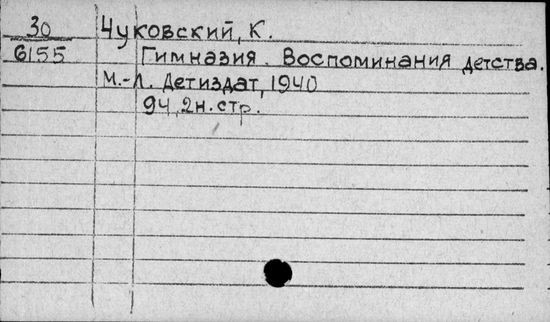 30 Чуковский, К.
6155 Гимназия. Воспоминания детства.
М.-Л. Детиздат, 1940
94, 2н. стр.